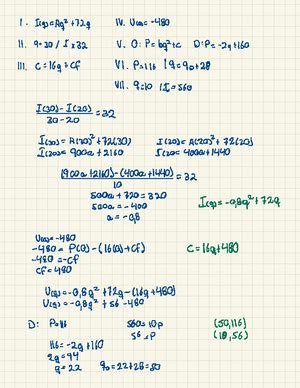 I. I(q)=Aq²+72q
IV. U(0)=-480
II. q=20/I x 32
V. O: P=bq+c D: P=-2q+160
III. C=16q+CF
VI. P=116 | q=q0+28
VII. q=10 | I=560
I(30)-I(20) / 30-20 = 32
I(30)=A(30)²+72(30) I(20)=A(20)²+72(20)
I(30)=900a+2160 I(20)=400a+1440
(900a+2160)-(400a+1440) / 10 = 32
500a+720=320
500a=-400
a=-0,8
I(q)=-0,8q²+72q
U(0)=-480
-480=P(0)-(16(0)+CF)
-480=-CF
CF=480
C=16q+480
U(q)=-0,8q²+72q-(16q+480)
U(q)=-0,8q²+56-480
D: P=116 560=10p (50,116)
56=P (10,56)
116=-2q+160
2q=44
q=22 q0=22+28=50